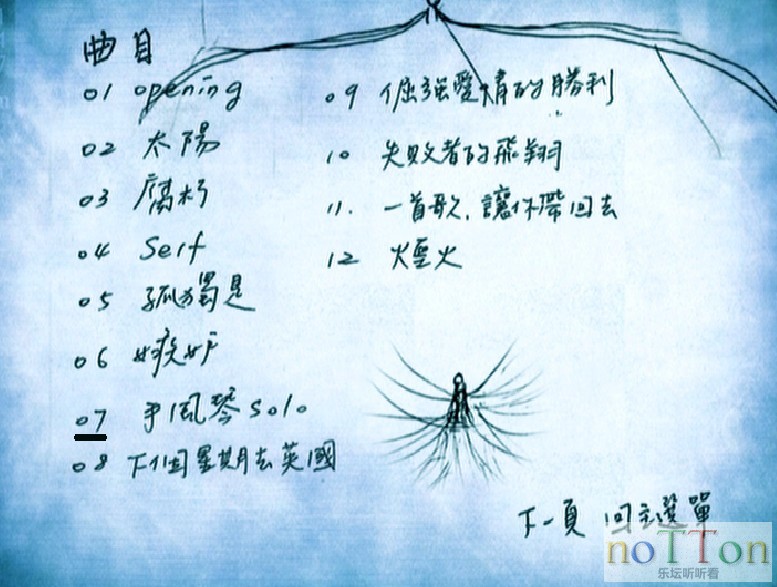 曲目
01 opening
02 太陽
03 腐朽
04 Serf
05 孤獨是
06 嫉妒
07 手風琴 solo
08 下個星期去英國
09 倔強愛情的勝利
10 失敗者的飛翔
11. 一首歌,讓你帶回去
12 煙火
下一頁 回主選單
noTTon
乐坛听听看